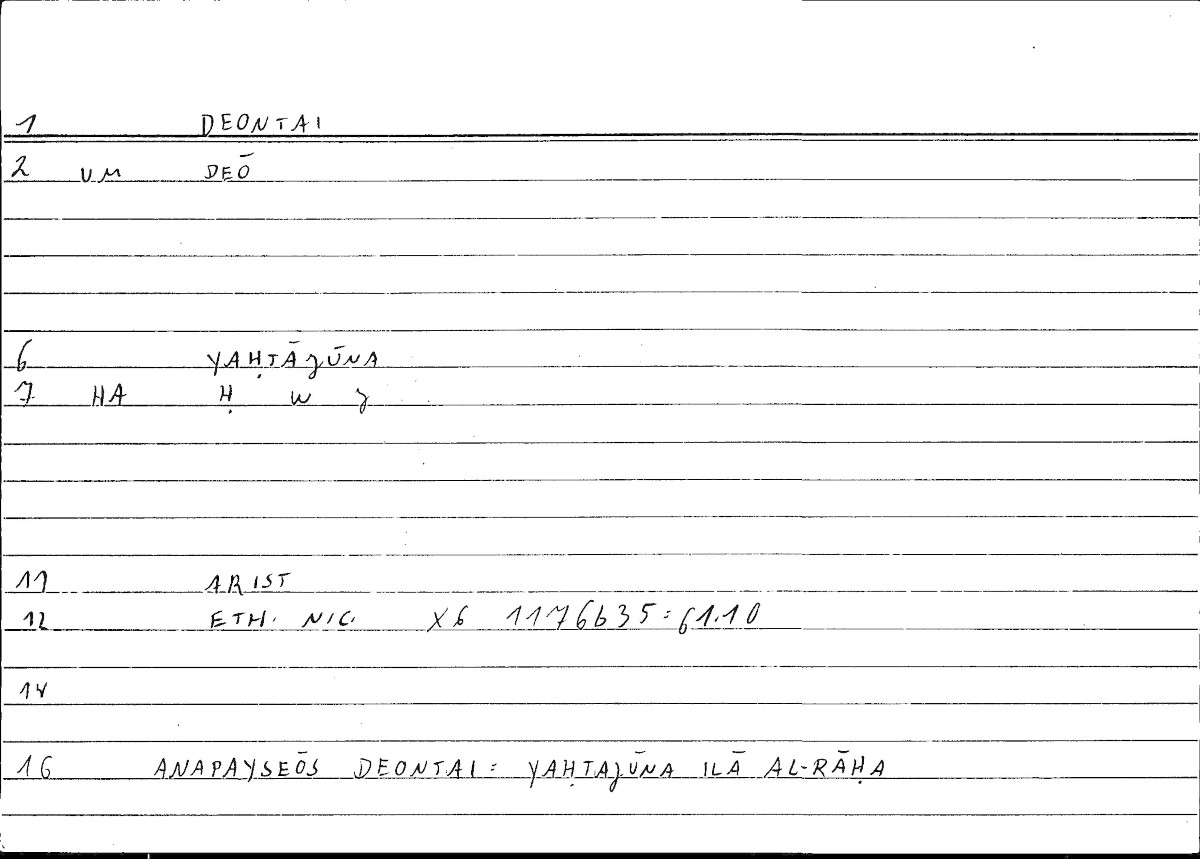 1 DEONTAI
2 UM DEŌ
6 YAḤTĀJŪNA
7 HA Ḥ W J
11 ARIST
12 ETH. NIC. X6 1176b35 = 61.10
14
16 ANAPAYSEŌS DEONTAI : YAḤTAJŪNA ILĀ AL-RĀḤA